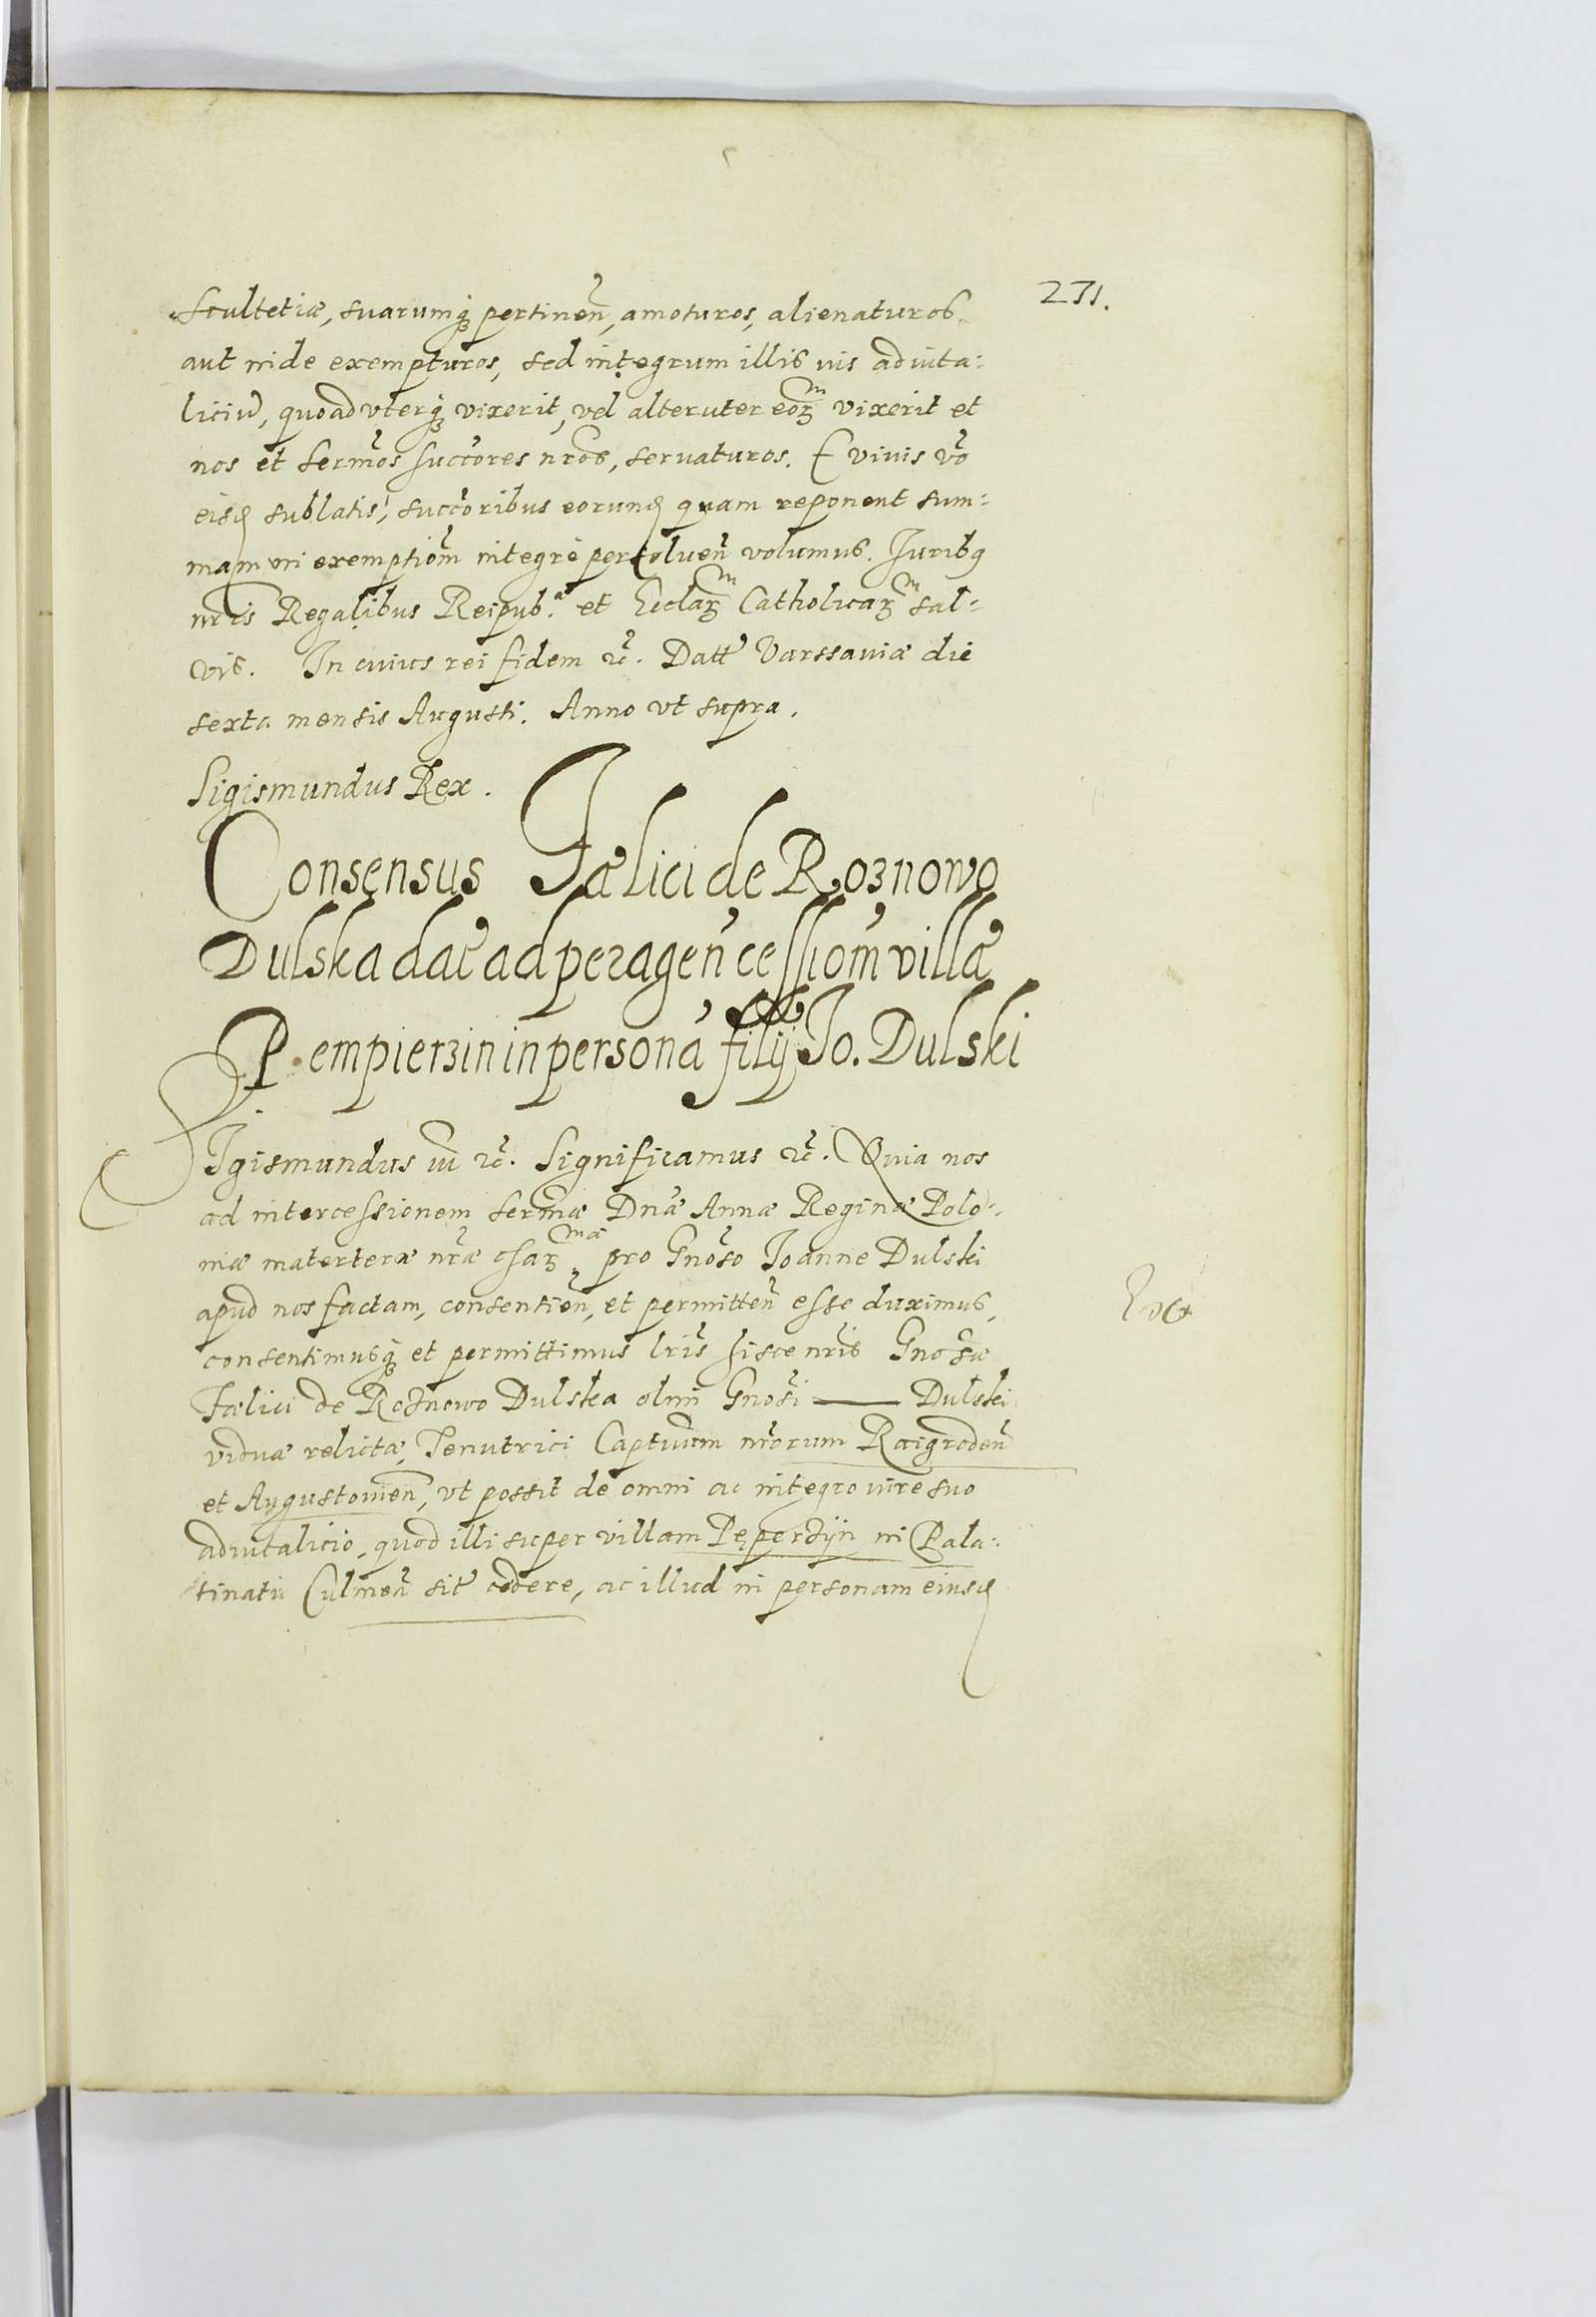 231.
Scultetiæ, suarumq́ꝫ pertineñ, amoturos, alienaturos
aut inde exempturos, sed integrum illis ius aduita:
liciu͂, quoad vterq́ꝫ vixerit, vel alteruter eoꝝᵐ vixerit et
nos et Serm̃os succ̃ores nr̃os, seruaturos. E viuis vr̃o
eisđ sublatis, succ̃oribus eorunđ quam reponent sum:
mam in exemptiom̃ integrè persolueñ volumus. Juribꝰ
nr̃is Regalibus Reipub.ᵃᵉ et Ecclaꝝᵐ Catholicaꝝᵐ sal:
vis. In cuius rei fidem ꝛc̃. Datt̃ Varssauiæ die
sexta mensis Augusti. Anno vt supra.
Sigismundus Rex.
Consensus Fælici de Roznowo
Dulska dat̃ ad perageñ cessiom̃ villæ
Pempierzin in persona͂ filij Jo. Dulski
SIgismundus iii ꝛc̃. Significamus ꝛc̃. Quia nos
ad intercessionem Serm̃æ Dn̄æ Annæ Reginæ Polo:
niæ materteræ nr̃æ chaꝝᵐᵃᵉ, pro Gnõso Joanne Dulski
apud nos factam, consentieñ, et permitteñ esse duximus,
consentimusq́ꝫ et permittimus lr̃is hisce nr̃is Gnõsæ
Fælici de Roznowo Dulska olim Gnõsi —— Dulski
viduæ relictæ, Tenutrici Captiuum nr̃orum Raigrodeñ
et Augustouieñ, vt possit de omni ac integro iure suo
aduitalicio, quod illi super villam Pęperzijn in Pala:
tinatu Culmeñ sit̃ cedere, ac illud in personam eiusđ